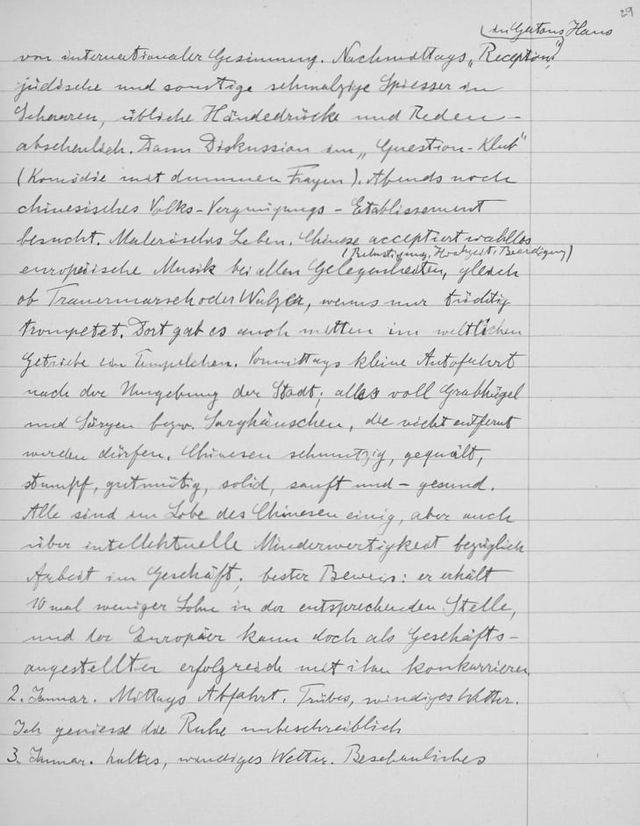 29
in Gatons Haus
von internationaler Gesinnung. Nachmittags „Reception",
jüdische und sonstige schmalzige Spiesser in
Scharen, übliche Händedrücke und Reden –
abscheulich. Dann Diskussion im „Question-Klub"
(Komödie mit dummen Fragen). Abends noch
chinesisches Volks-Vergnügungs-Etablissement
besucht. Malerisches Leben. Chinese acceptiert wahllos
(Belustigung, Hochzeit, Beerdigung)
europäische Musik bei allen Gelegenheiten, gleich
ob Trauermarsch oder Walzer, wenns nur tüchtig
trompetet. Dort gab es auch mitten im weltlichen
Getriebe ein Tempelchen. Vormittags kleine Autofahrt
nach der Umgebung der Stadt; alles voll Grabhügel
und Särgen bezw. Sarghäuschen, die nicht entfernt
werden dürfen. Chinesen schmutzig, gequält,
stumpf, gutmütig, solid, sanft und – gesund.
Alle sind im Lobe des Chinesen einig, aber auch
über intellektuelle Minderwertigkeit bezüglich
Arbeit im Geschäft; bester Beweis: er erhält
10 mal weniger Lohn in der entsprechenden Stelle,
und der Europäer kann doch als Geschäfts-
angestellter erfolgreich mit ihm konkurrieren
2. Januar. Mittags Abfahrt. Trübes, windiges Wetter.
Ich geniesse die Ruhe unbeschreiblich
3. Januar. kaltes, windiges Wetter. Beschauliches